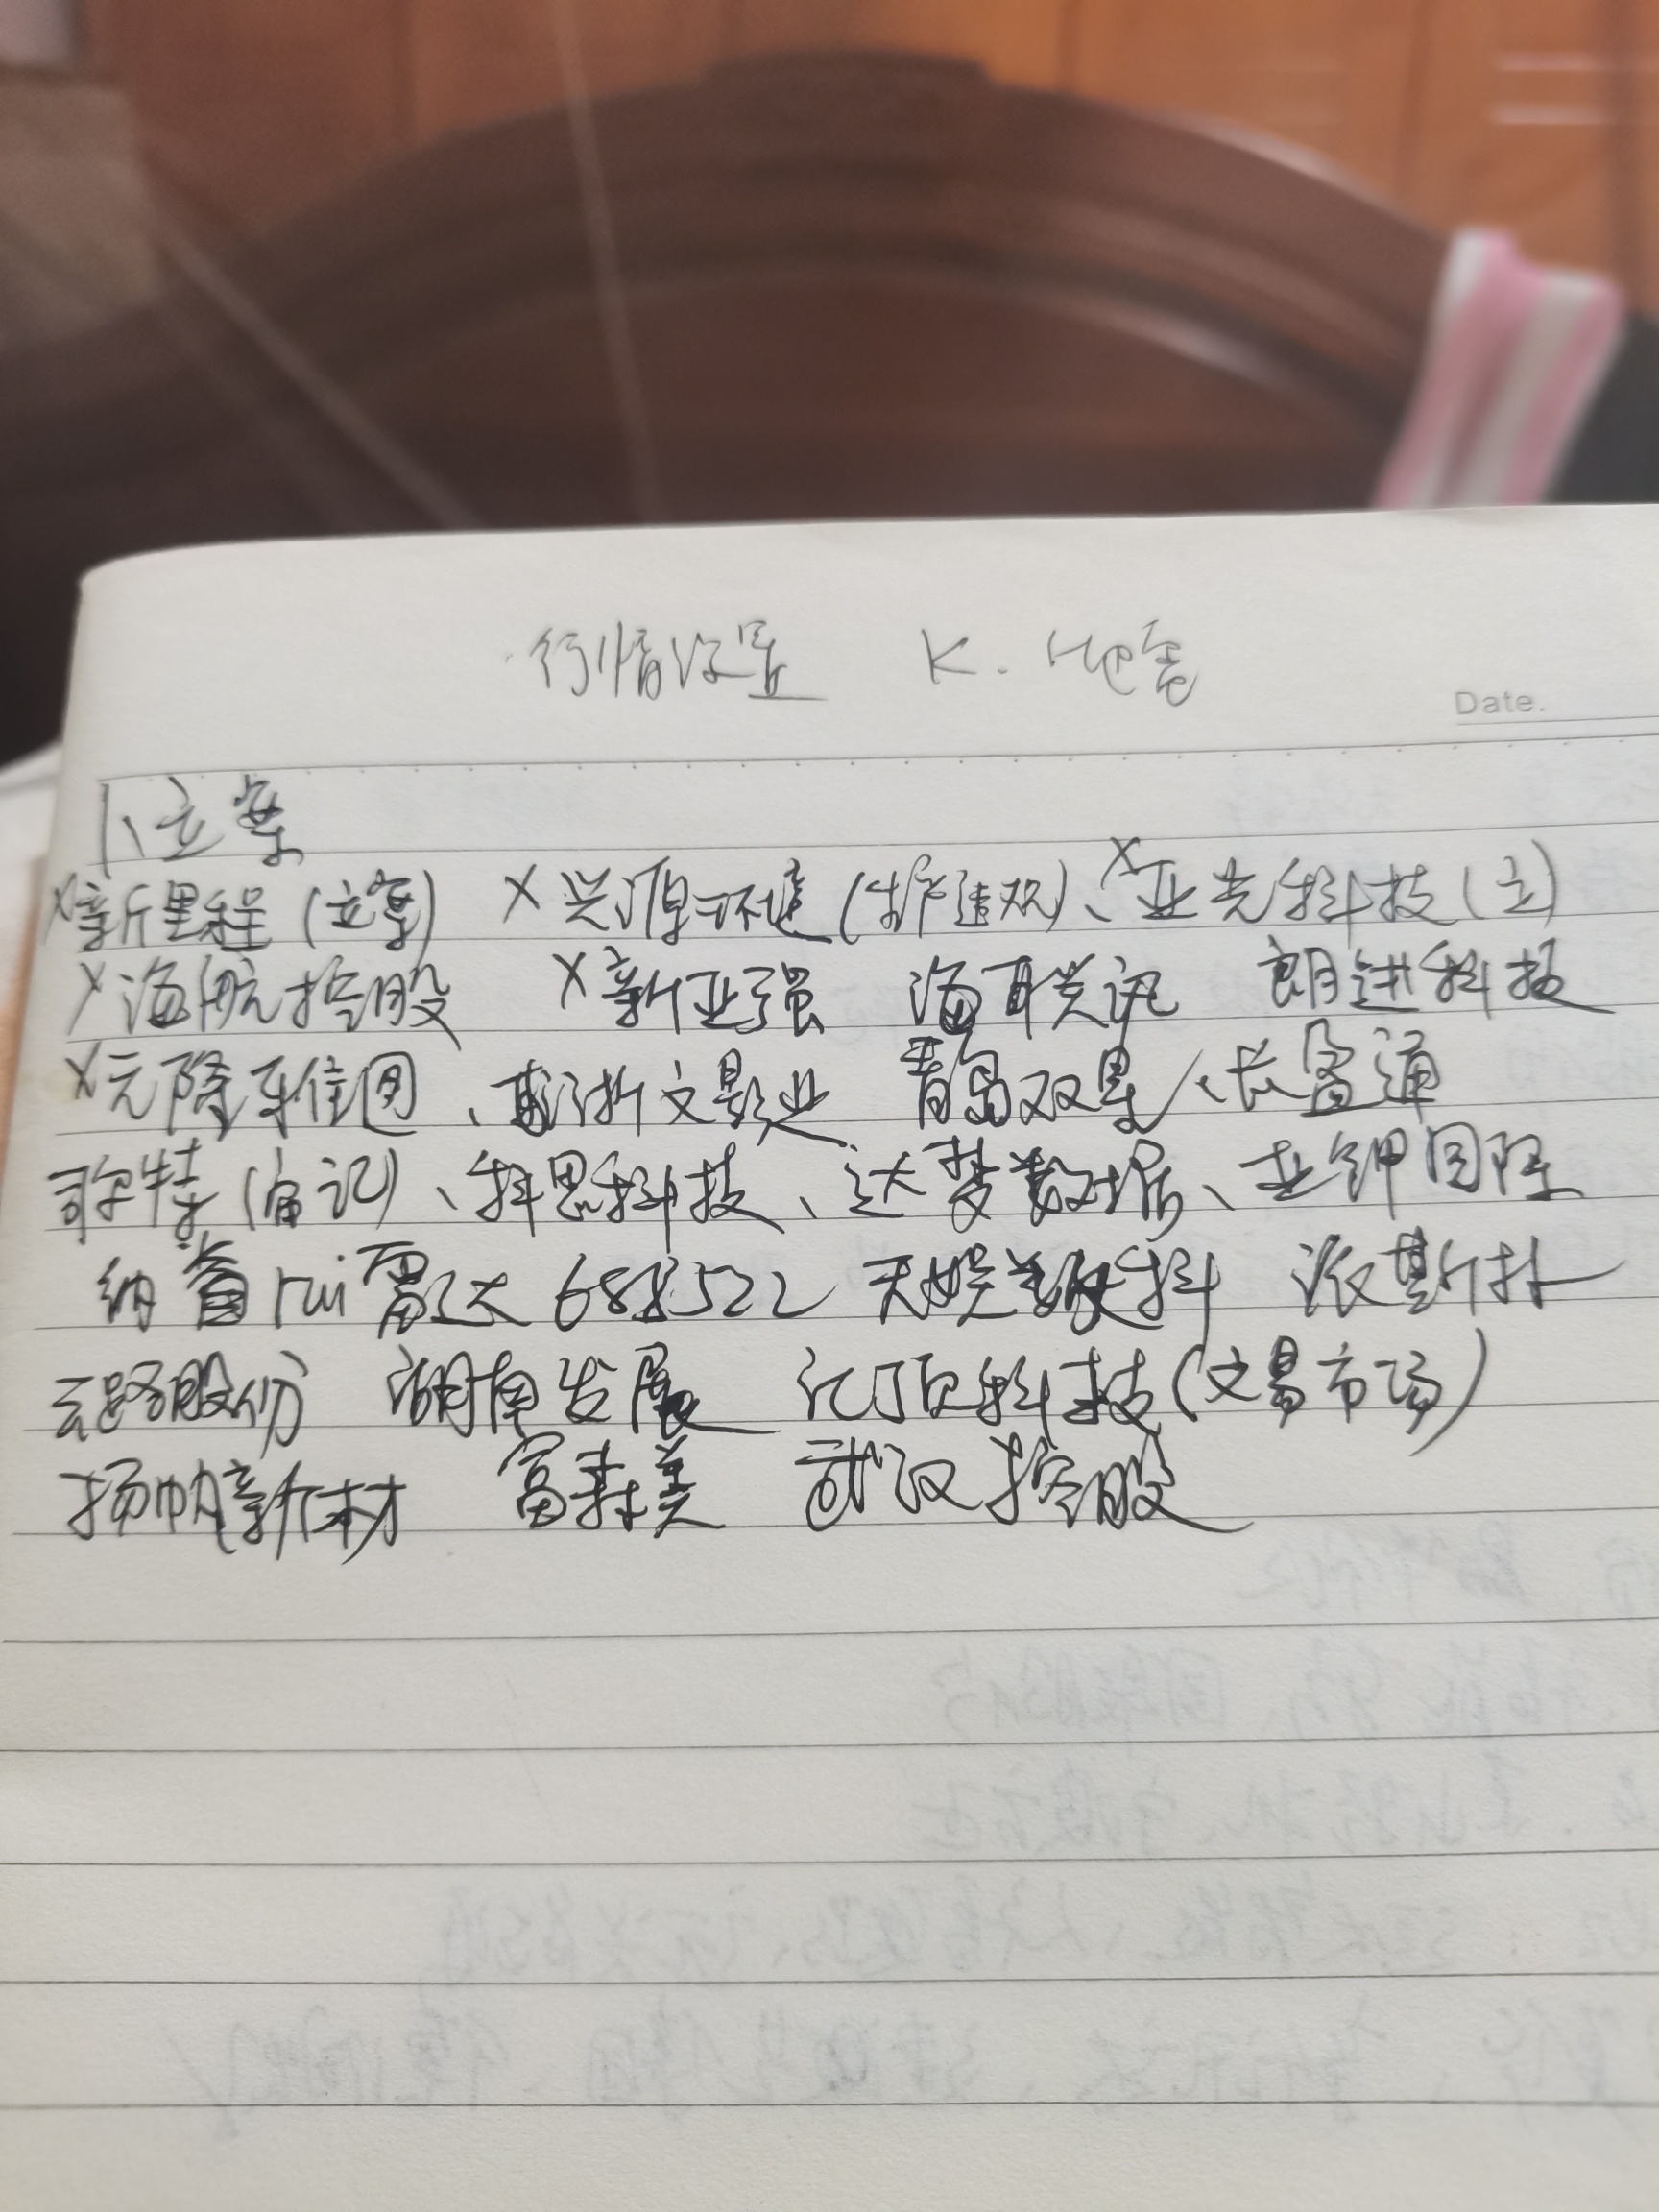 行情设置 K.
Date.
1、立案
X新里程(立案) X兴源环境(涉违规)、X亚光科技(立)
X海航控股 X新亚强 海联讯 朗进科技
X元隆雅图、浙文影业 青岛双星、长盈通
歌尔特(笔记)、科思科技、达梦数据、亚钾国际
纳睿rui雷达 688522 天娱数科 派斯林
云路股份 湖南发展 汇顶科技(交易市场)
扬帆新材 富森美 武汉控股